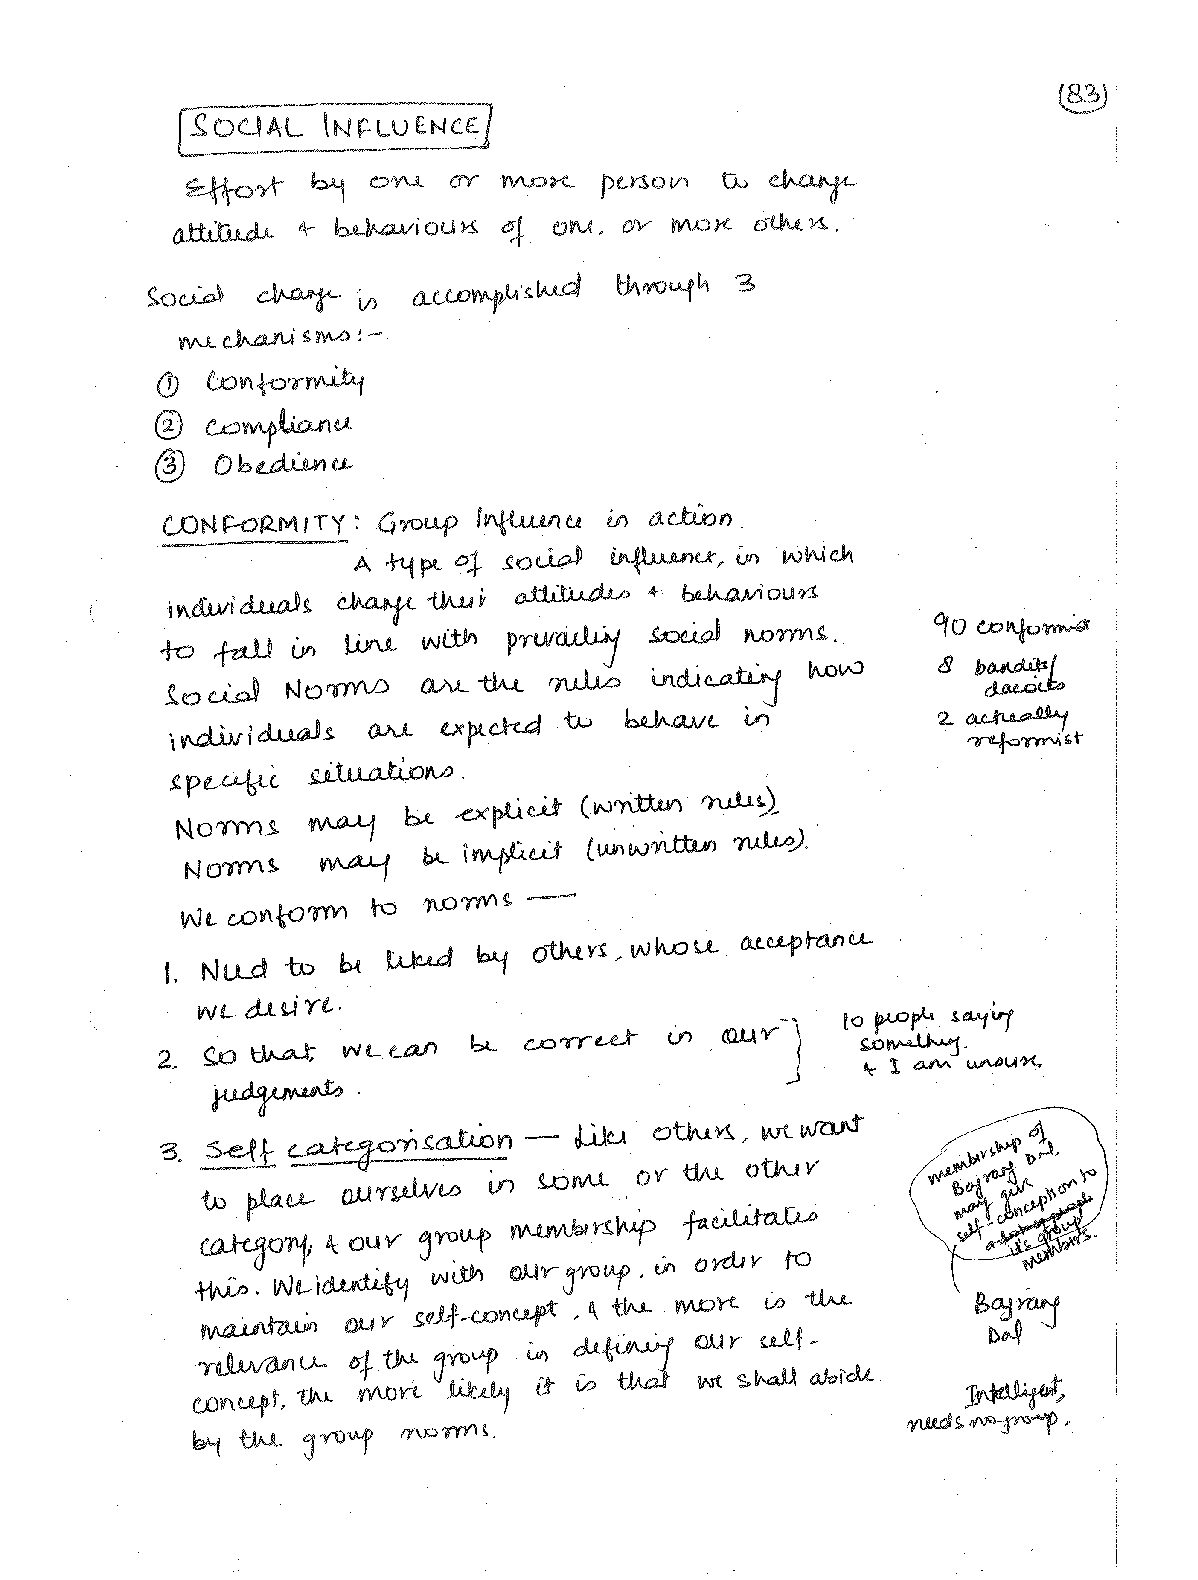 (83)
SOCIAL INFLUENCE
Effort by one or more person to change
attitude & behaviours of one or more others.
Social change is accomplished through 3
mechanisms:-
① Conformity
② Compliance
③ Obedience
CONFORMITY: Group Influence in action.
A type of social influence, in which
individuals change their attitudes & behaviours
to fall in line with prevailing social norms.
Social Norms are the rules indicating how
individuals are expected to behave in
specific situations.
90 conformist
8 bandits/
dacoits
2 actually
reformist
Norms may be explicit (written rules)
Norms may be implicit (unwritten rules).
We conform to norms —
1. Need to be liked by others, whose acceptance
we desire.
2. So that, we can be correct in our
judgements.
10 people saying
something.
& I am unsure.
3. Self categorisation — Like others, we want
to place ourselves in some or the other
category, & our group membership facilitates
this. We identify with our group, in order to
maintain our self-concept, & the more is the
relevance of the group in defining our self-
concept, the more likely it is that we shall abide
by the group norms.
membership of
Bajrang Dal
may give
self-conception to
it's group
members.
Bajrang
Dal
Intelligent,
needs no group.